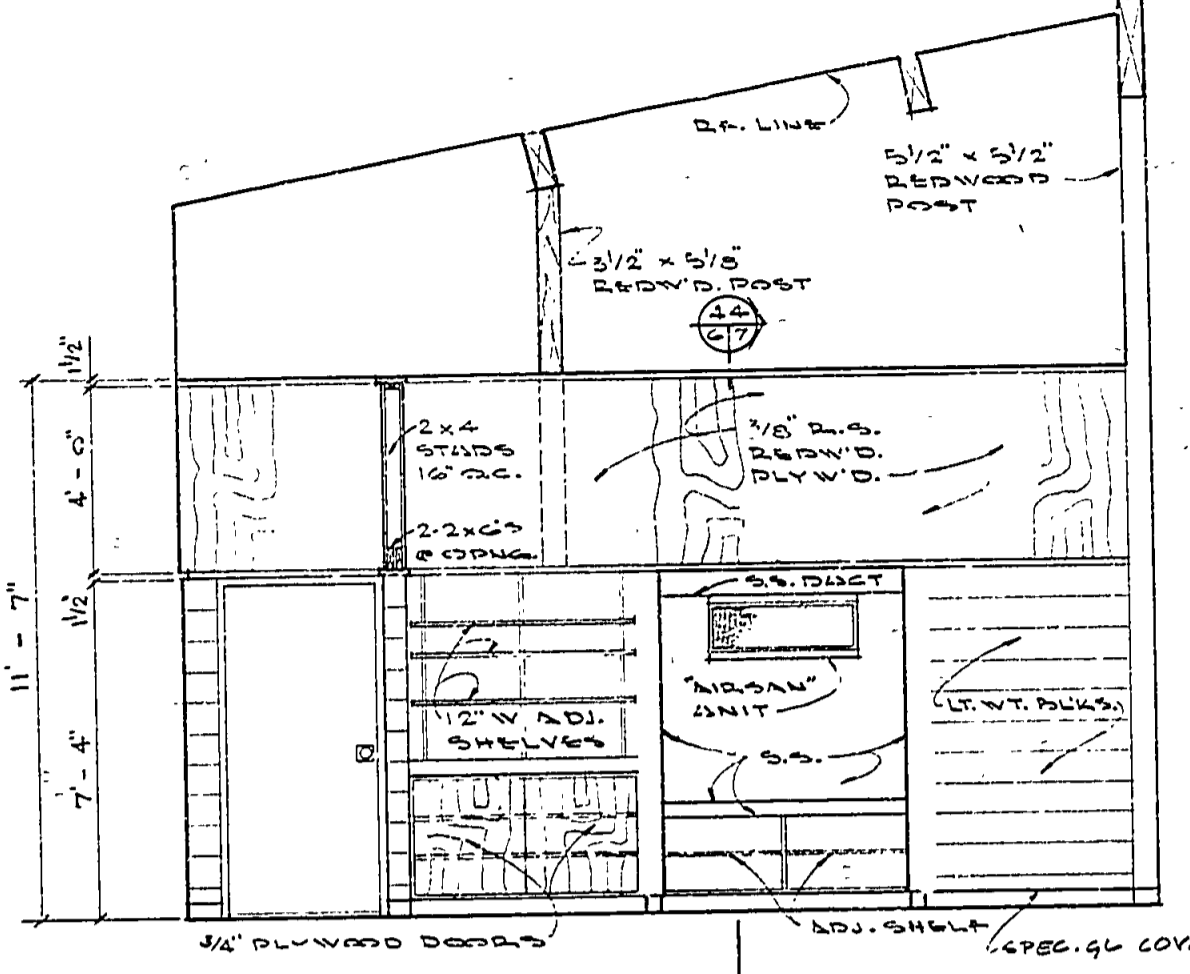 RF. LINE
5 1/2" x 5 1/2"
REDWOOD
POST
3 1/2" x 5 1/8"
REDW'D. POST
6 7
1 1/2"
4' - 0"
1 1/2"
7' - 4"
11' - 7"
2 x 4
STUDS
16" O.C.
2-2x6'S
@ OPNG.
3/8" R.S.
REDW'D.
PLYW'D.
S.S. DUCT
"AIRSAN"
UNIT
12" W ADJ.
SHELVES
LT. WT. BLKS.
S.S.
3/4" PLYWOOD DOORS
ADJ. SHELF
SPEC. GL COV.